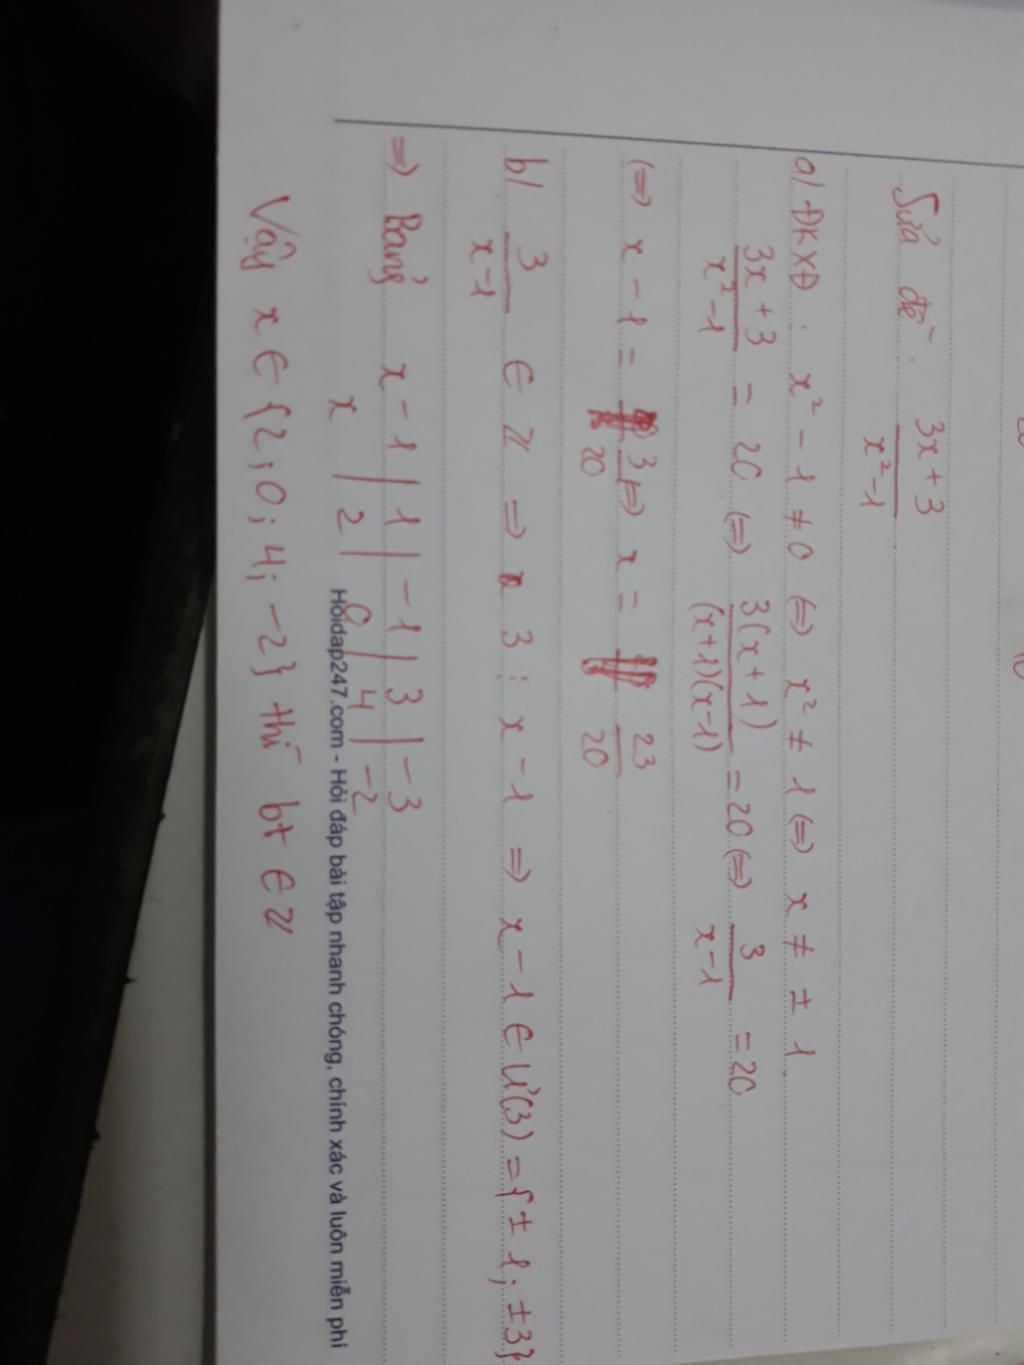 Sửa đề: \frac{3x+3}{x^2-1}
a/ ĐKXĐ: x² - 1 ≠ 0 (=) x² ≠ 1 (=) x ≠ ± 1
\frac{3x+3}{x^2-1} = 20 (=) \frac{3(x+1)}{(x+1)(x-1)} = 20 (=) \frac{3}{x-1} = 20
(=) x - 1 = \frac{3}{20} (=) x = \frac{23}{20}
b/ \frac{3}{x-1} ∈ Z => 3 ⋮ x - 1 => x - 1 ∈ Ư(3) = {± 1; ± 3}
=) Bảng x - 1 | 1 | -1 | 3 | -3
x | 2 | 0 | 4 | -2
Hoidap247.com - Hỏi đáp bài tập nhanh chóng, chính xác và luôn miễn phí
Vậy x ∈ {2; 0; 4; -2} thì bt ∈ Z